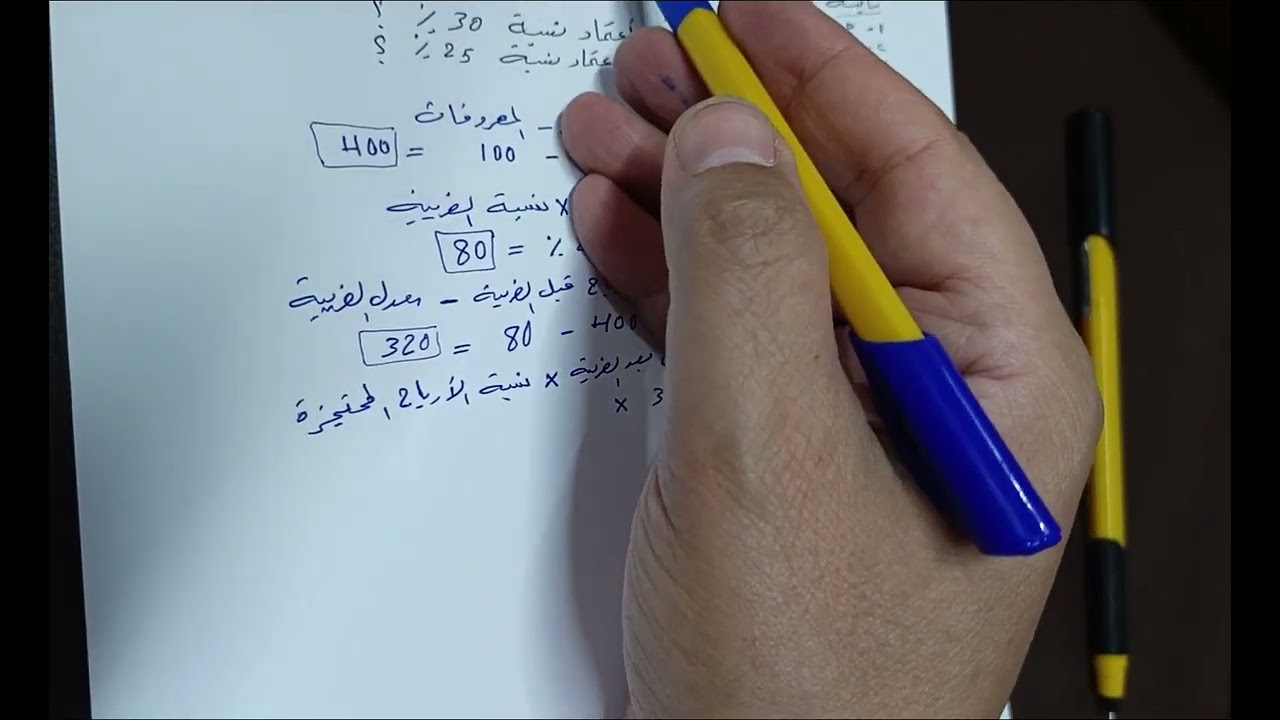 أعتماد نسبة 30 ٪ ؟
نسبة 25 ٪ ؟
- المصروفات
- 100 = 400
× نسبة الضريبة
٪ = 80
قبل الضريبة - معدل الضريبة
400 - 80 = 320
بعد الضريبة × نسبة الأرباح المحتجزة
3 ×